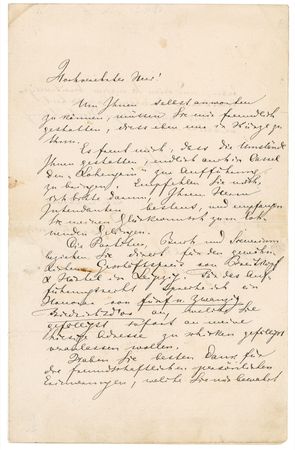 Hochverehrter Herr!
Um Ihnen selbst antworten
zu können, müssen Sie mir freundlich
gestatten, dies eben nur in Kürze zu
thun.
Es freut mich, dass die Umstände
Ihnen gestatten, endlich auch in Cassel
den „Lohengrin" zur Aufführung
zu bringen. Empfehlen Sie mich,
ich bitte darum, Ihrem Herrn
Intendanten bestens, und empfangen
Sie meinen Glückwunsch zum
Gelingen.
Die Partitur, Buch und Scenarium
beziehen Sie direct für den
von Breitkopf
& Härtel in Leipzig. Für das Auf-
führungsrecht spreche ich ein
Honorar von fünf u. zwanzig
Friedrichsd'or an, welche Sie
gefälligst sofort an meine
hiesige Adresse zu schicken gefälligst
veranlassen wollen.
Haben Sie besten Dank für
die freundschaftlichen persönlichen
Erinnerungen, welche Sie mir bewahrt